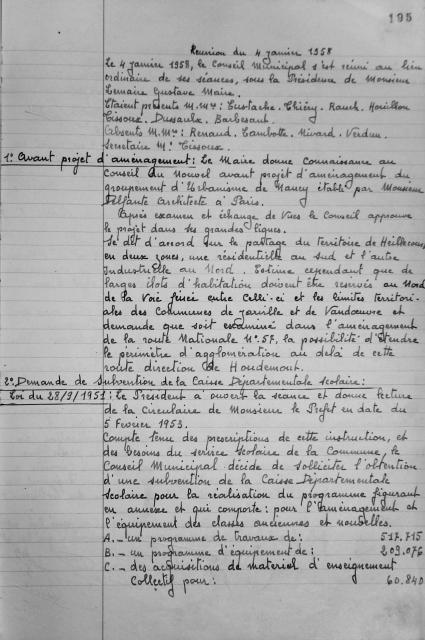 195
Réunion du 4 janvier 1958
Le 4 janvier 1958, le Conseil Municipal s'est réuni au lieu
ordinaire de ses séances, sous la Présidence de Monsieur
Lemaire Gustave Maire.
Etaient présents M.M. : Eustache. Thiéry. Rauch. Houillon
Cissoux. Dussaulx. Barbesant.
Absents M.M. : Renaud. Lambotte. Nivard. Verdun.
Secrétaire M. Cissoux.
1° Avant projet d'aménagement : Le Maire donne connaissance au
Conseil du Nouvel avant projet d'aménagement du
groupement d'Urbanisme de Nancy établi par Monsieur
Architecte à Paris.
Après examen et échange de Vues le Conseil approuve
le projet dans ses grandes lignes.
Se dit d'accord sur le partage du territoire de Heillecourt
en deux zones, une résidentielle au sud et l'autre
Industrielle au Nord. Estime cependant que de
larges îlots d'habitation doivent être réservés au Nord
de la Voie ferrée entre Celle-ci et les limites territori-
ales des Communes de Jarville et de Vandoeuvre et
demande que soit examiné dans l'aménagement
de la route Nationale N° 57, la possibilité d'étendre
le périmètre d'agglomération au delà de cette
route direction de Houdemont.
2° Demande de Subvention de la Caisse Départementale Scolaire :
Loi du 28/9/1951 : Le Président a ouvert la séance et donne lecture
de la Circulaire de Monsieur le Préfet en date du
5 Février 1953.
Compte tenu des prescriptions de cette instruction, et
des besoins du service Scolaire de la Commune, le
Conseil Municipal décide de solliciter l'obtention
d'une subvention de la Caisse Départementale
Scolaire pour la réalisation du programme figurant
en annexe et qui comporte : pour l'aménagement et
l'équipement des classes anciennes et nouvelles.
A. - un programme de travaux de : 517.715
B. - un programme d'équipement de : 209.076
C. - des acquisitions de matériel d'enseignement
Collectif pour : 60.840